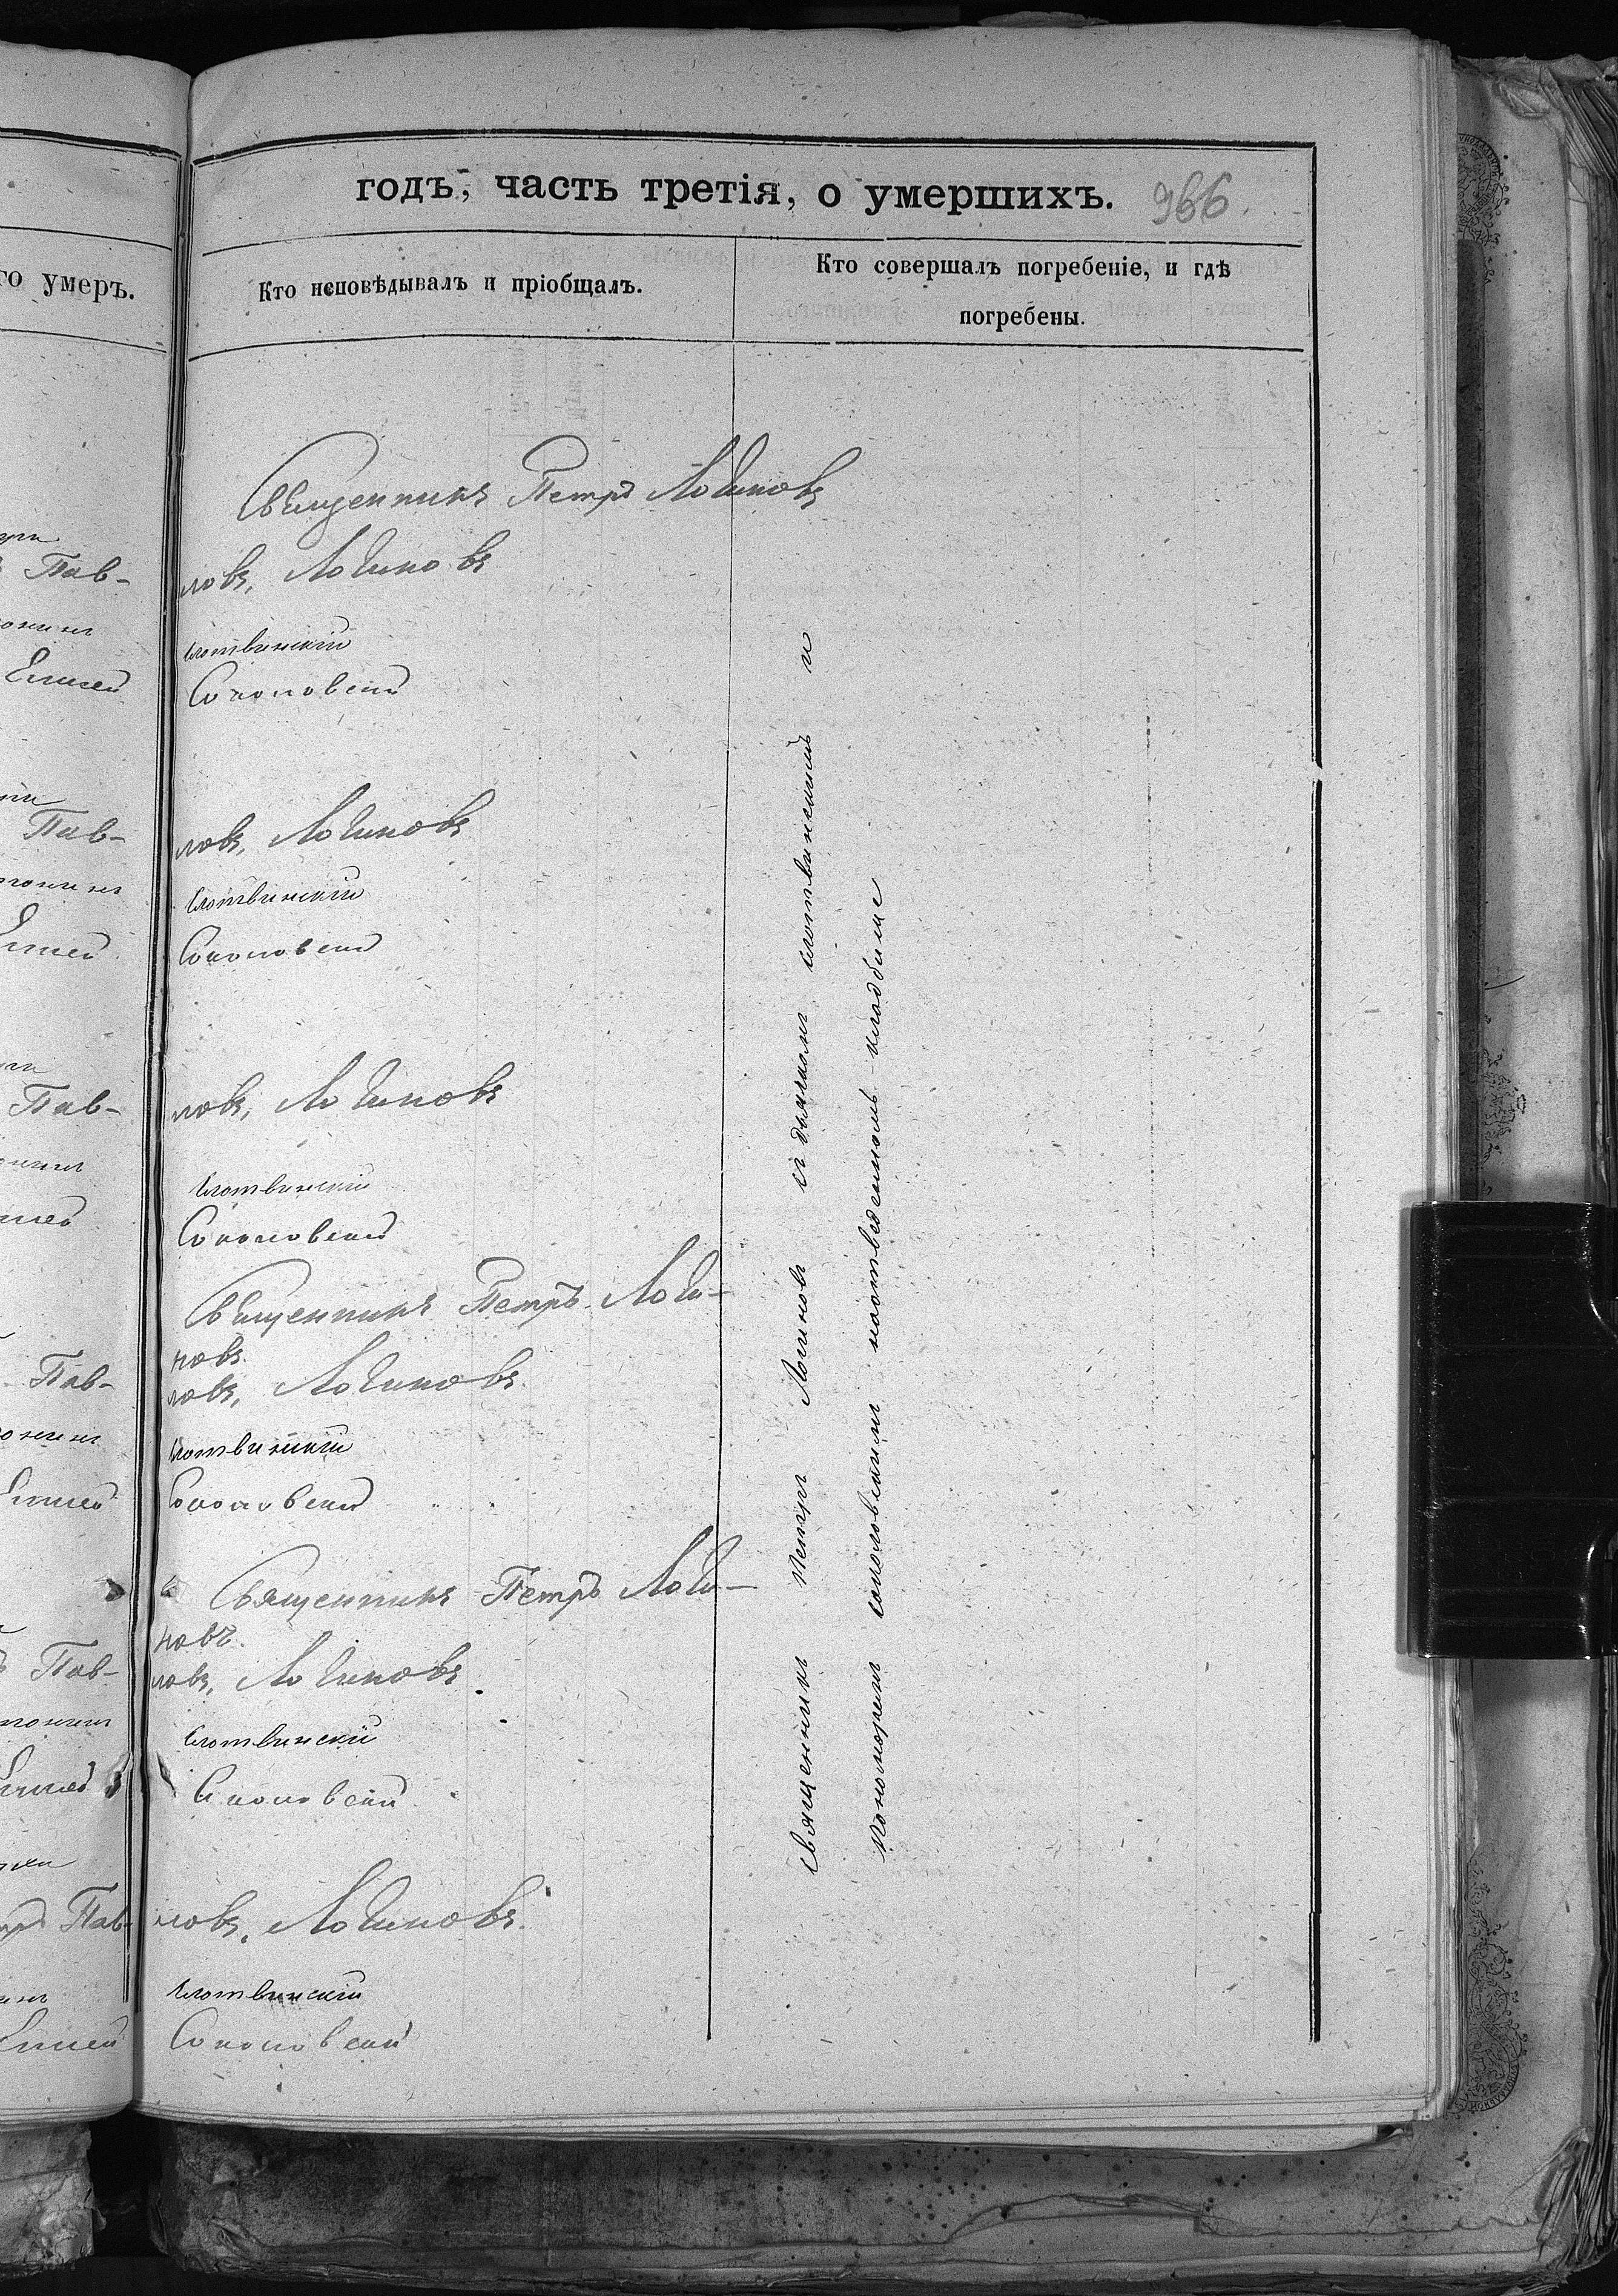 годъ, часть третія, о умершихъ. 966
го умеръ.
Кто исповѣдывалъ и пріобщалъ.
Кто совершалъ погребеніе, и гдѣ
погребены.
Священникъ Петръ Логиновъ
Пав-
ловъ, Логиновъ
Слотвинскій
Елисей
Соколовскій
Пав-
ловъ, Логиновъ
Слотвинскій
Елисей
Соколовскій
Пав-
ловъ, Логиновъ
Слотвинскій
Соколовскій
Священникъ Петръ Логи-
новъ.
Пав-
ловъ, Логиновъ.
Слотвинскій
Елисей
Соколовскій
Священникъ Петръ Логи-
новъ.
Пав-
ловъ, Логиновъ.
Слотвинскій
Елисей
Соколовскій
Пав-
ловъ, Логиновъ.
Слотвинскій
Елисей
Соколовскій
Священникъ Петръ Логиновъ съ дьякомъ Слотвинскимъ и
пономоремъ Соколовскимъ на отведенномъ кладбище